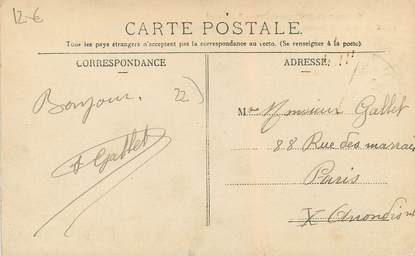 12-6
CARTE POSTALE
Tous les pays étrangers n'acceptent pas la correspondance au verso. (Se renseigner à la poste)
CORRESPONDANCE
ADRESSE
!!!
Bonjour.
22)
Gallet
M Monsieur Gallet
88 Rue des marais
Paris
X